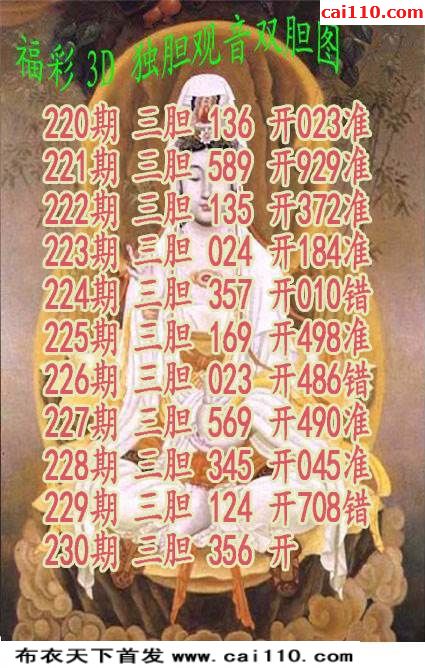 cai110.com
福彩3D 独胆观音双胆图
220期 三胆 136 开023准
221期 三胆 589 开929准
222期 三胆 135 开372准
223期 三胆 024 开184准
224期 三胆 357 开010错
225期 三胆 169 开498准
226期 三胆 023 开486错
227期 三胆 569 开490准
228期 三胆 345 开045准
229期 三胆 124 开708错
230期 三胆 356 开
布衣天下首发 www.cai110.com